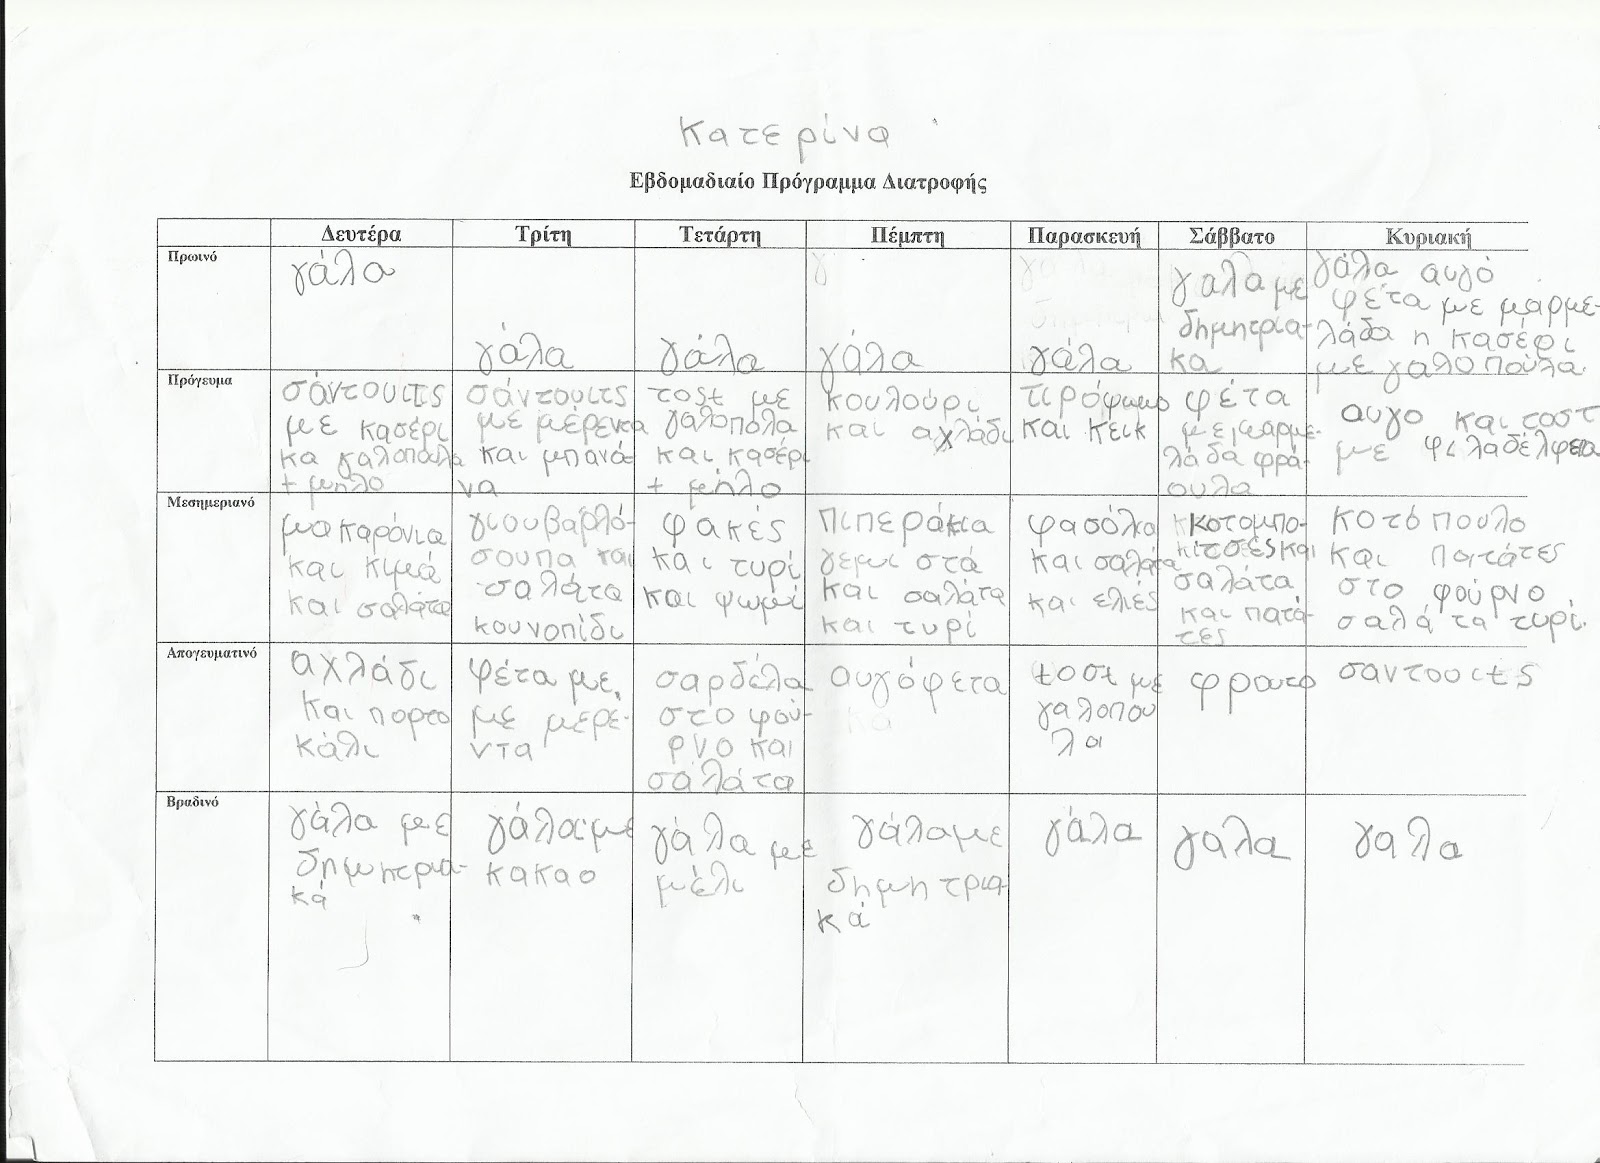 Κατερίνα
Εβδομαδιαίο Πρόγραμμα Διατροφής
Δευτέρα Τρίτη Τετάρτη Πέμπτη Παρασκευή Σάββατο Κυριακή
Πρωινό
γάλα
γάλα
γάλα
γάλα
γάλα
γαλα με
δημητρια-
κα
γάλα αυγό
φέτα με μαρμε-
λάδα η κασέρι
με γαλοπούλα.
Πρόγευμα
σάντουιτς
με κασέρι
κα γαλοπουλα
+ μηλο
σάντουιτς
με μέρεντα
και μπανά-
να
τοst με
γαλοπολα
και κασέρι
+ μηλο
κουλούρι
και αχλάδι
τιρόψωμο
και κεικ
φέτα
με μαρμε-
λάδα φρά-
ουλα
αυγο και τοστ
με φιλαδέλφεια
Μεσημεριανό
μακαρόνια
και κιμά
και σαλάτα
γιουβαρλό-
σουπα και
σαλάτα
κουνοπίδι
φακές
και τυρί
και ψωμί
πιπεράκια
γεμιστά
και σαλάτα
και τυρί
φασόλα
και σαλάτα
και ελιές
κοτομπο-
κιτσές και
σαλάτα
και πατά-
τες
κοτόπουλο
και πατάτες
στο φούρνο
σαλάτα τυρί.
Απογευματινό
αχλάδι
και πορτο
κάλι
φέτα με,
με μερέ-
ντα
σαρδέλα
στο φού-
ρνο και
σαλάτα
αυγόφετα
κα
tost με
γαλοπου
λα
φρουτο
σαντουιtς
Βραδινό
γάλα με
δημητρια-
κά
γάλα με
κακαο
γάλα με
μέλι
γάλα με
δημητρια-
κά
γάλα
γαλα
γαλα